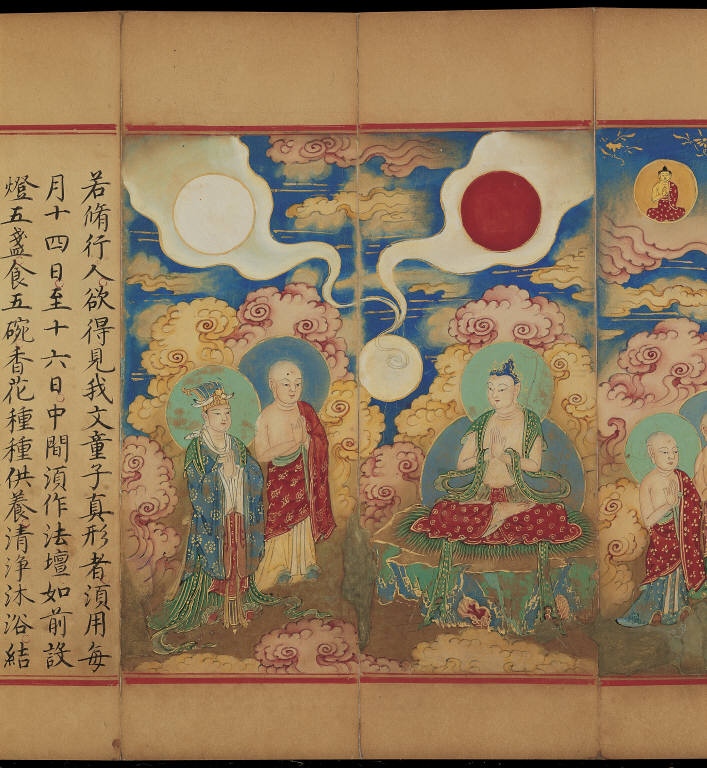 若脩行人欲得見我文童子真形者湏用每
月十四日至十六日中間湏作法壇如前設
燈五盞食五碗香花種種供養清淨沐浴結